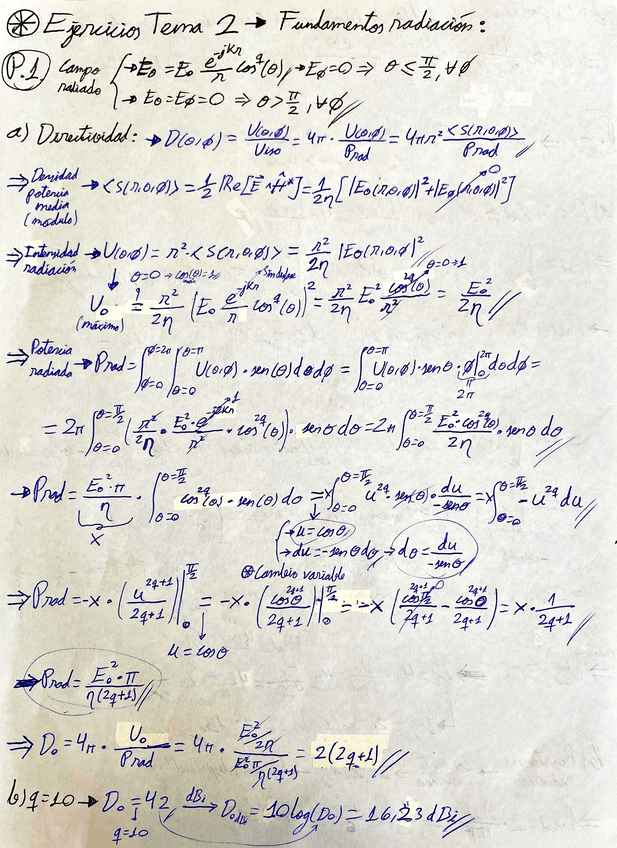 ⊛ Ejercicios Tema 2 → Fundamentos radiación:
P.1 Campo radiado { → Eθ = E₀ e^(-jKr)/r cos^q(θ), → Eϕ = 0 ⇒ θ ≤ π/2, ∀ϕ
→ Eθ = Eϕ = 0 ⇒ θ > π/2, ∀ϕ //
a) Directividad: → D(θ,ϕ) = U(θ,ϕ)/Uiso = 4π · U(θ,ϕ)/Prad = 4πr² <S(r,θ,ϕ)>/Prad //
⇒ Densidad potencia media (módulo) → <S(r,θ,ϕ)> = 1/2 |Re[E⃗ ∧ H⃗*]| = 1/2η [|Eθ(r,θ,ϕ)|² + |Eϕ(r,θ,ϕ)|²] → 0
⇒ Intensidad radiación → U(θ,ϕ) = r² · <S(r,θ,ϕ)> = r²/2η |Eθ(r,θ,ϕ)|²
U₀ (máximo) = r²/2η (E₀ e^(-jKr)/r cos^q(θ))² = r²/2η E₀² cos^2q(θ)/r² = E₀²/2η //
θ=0 → 1
⇒ Potencia radiada → Prad = ∫ϕ=0^ϕ=2π ∫θ=0^θ=π U(θ,ϕ) · sen(θ) dθ dϕ = ∫θ=0^θ=π U(θ,ϕ) · senθ · ϕ|₀^2π dθdϕ =
2π
= 2π ∫θ=0^θ=π/2 (r²/2η · E₀² · e^(-j2Kr)/r² · cos^2q(θ)) · senθ dθ = 2π ∫θ=0^θ=π/2 E₀² · cos^2q(θ)/2η · senθ dθ //
→ Prad = E₀² · π/η · ∫θ=0^θ=π/2 cos^2q(θ) · sen(θ) dθ = x ∫θ=0^θ=π/2 u^2q · senθ · du/-senθ = x ∫θ=0^θ=π/2 -u^2q du //
x
{ → u = cosθ
→ du = -senθ dθ → dθ = du/-senθ
⊛ Cambio variable
⇒ Prad = -x · (u^(2q+1)/2q+1)|₀^π/2 = -x · (cos^(2q+1)θ/2q+1)|₀^π/2 = -x (cos^(2q+1)π/2/2q+1 - cos^(2q+1)0/2q+1) = x · 1/2q+1 //
u = cosθ
⇒ Prad = E₀² · π/η(2q+1) //
⇒ D₀ = 4π · U₀/Prad = 4π · (E₀²/2η)/(E₀²π/η(2q+1)) = 2(2q+1) //
b) q=10 → D₀ = 42 dBi→ D₀dBi = 10log(D₀) = 16,23 dBi //
q=10